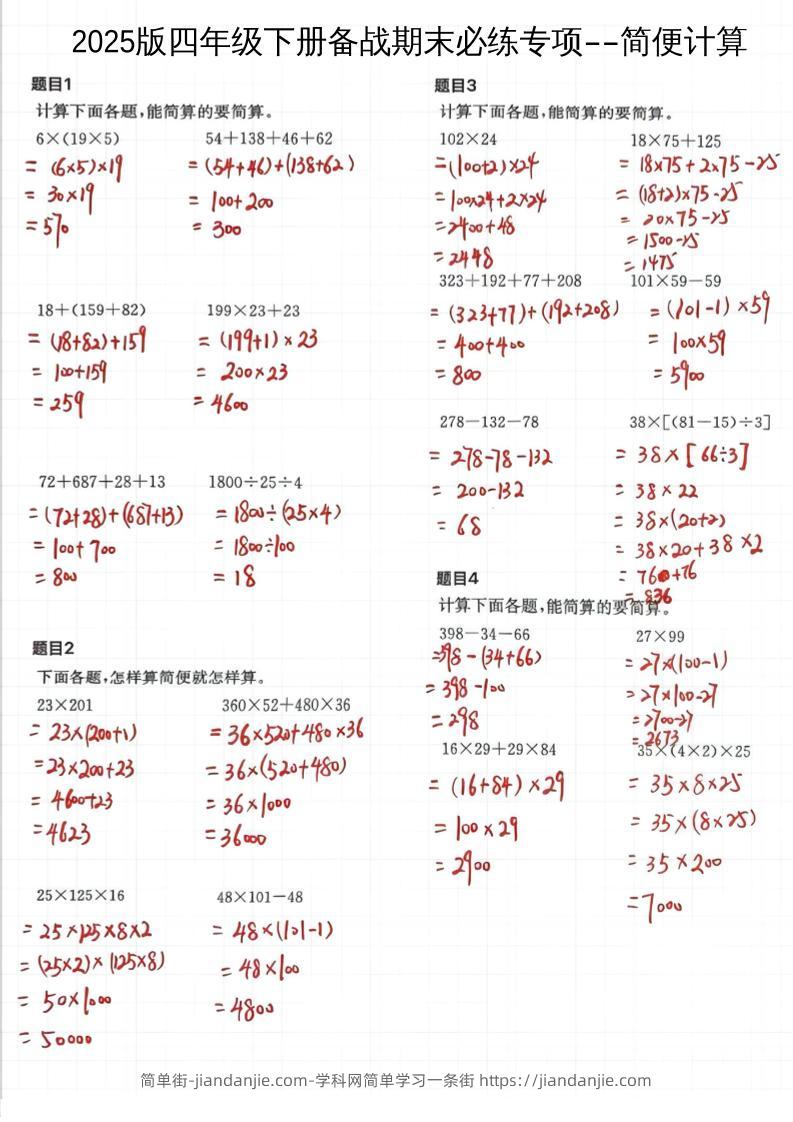 2025版四年级下册备战期末必练专项--简便计算
题目1
计算下面各题,能简算的要简算。
6×(19×5)
= (6×5)×19
= 30×19
= 570
54+138+46+62
= (54+46)+(138+62)
= 100+200
= 300
18+(159+82)
= (18+82)+159
= 100+159
= 259
199×23+23
= (199+1)×23
= 200×23
= 4600
72+687+28+13
= (72+28)+(687+13)
= 100+700
= 800
1800÷25÷4
= 1800÷(25×4)
= 1800÷100
= 18
题目2
下面各题,怎样算简便就怎样算。
23×201
= 23×(200+1)
= 23×200+23
= 4600+23
= 4623
360×52+480×36
= 36×520+480×36
= 36×(520+480)
= 36×1000
= 36000
25×125×16
= 25×125×8×2
= (25×2)×(125×8)
= 50×1000
= 50000
48×101-48
= 48×(101-1)
= 48×100
= 4800
题目3
计算下面各题,能简算的要简算。
102×24
= (100+2)×24
= 100×24+2×24
= 2400+48
= 2448
18×75+125
= 18×75+2×75-25
= (18+2)×75-25
= 20×75-25
= 1500-25
= 1475
323+192+77+208
= (323+77)+(192+208)
= 400+400
= 800
101×59-59
= (101-1)×59
= 100×59
= 5900
278-132-78
= 278-78-132
= 200-132
= 68
38×[(81-15)÷3]
= 38×[66÷3]
= 38×22
= 38×(20+2)
= 38×20+38×2
= 760+76
= 836
题目4
计算下面各题,能简算的要简算。
398-34-66
=398-(34+66)
= 398-100
= 298
27×99
= 27×(100-1)
= 27×100-27
= 2700-27
= 2673
16×29+29×84
= (16+84)×29
= 100×29
= 2900
35×(4×2)×25
= 35×8×25
= 35×(8×25)
= 35×200
= 7000
简单街-jiandanjie.com-学科网简单学习一条街 https://jiandanjie.com